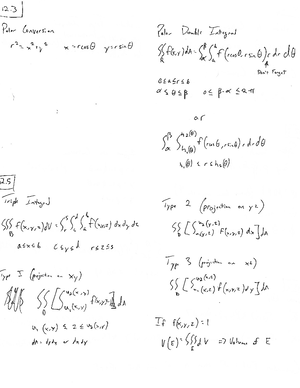 12.3
Polar Conversion
r² = x² + y²   x = r cosθ   y = r sinθ
Polar Double Integral
∬ f(x,y) dA = ∫ ∫ f(r cosθ, r sinθ) r dr dθ
Don't Forget
0 ≤ a ≤ r ≤ b
α ≤ θ ≤ β   0 ≤ β-α ≤ 2π
or
∫ ∫ f(r cosθ, r sinθ) r dr dθ
h₁(θ) ≤ r ≤ h₂(θ)
Triple Integral
∭ f(x,y,z) dV = ∫ ∫ ∫ f(x,y,z) dx dy dz
a ≤ x ≤ b   c ≤ y ≤ d   r ≤ z ≤ s
Type I (projection on xy)
∬ [∫ f(x,y,z) dz] dA
u₁(x,y) ≤ z ≤ u₂(x,y)
dA = dydx or dxdy
Type 2 (projection on yz)
∬ [∫ f(x,y,z) dx] dA
Type 3 (projection on xz)
∬ [∫ f(x,y,z) dy] dA
If f(x,y,z) = 1
V(E) = ∭ dV => Volume of E